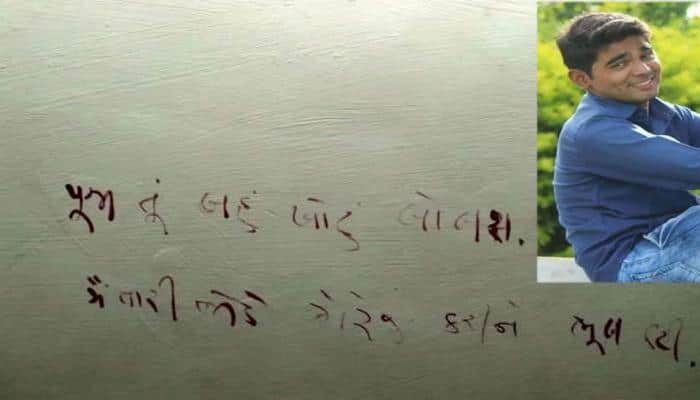 પૂજા તું બહું ખોટું બોલશ.
મેં તારી જોડે મેરેજ કરીને ભૂલ કરી.